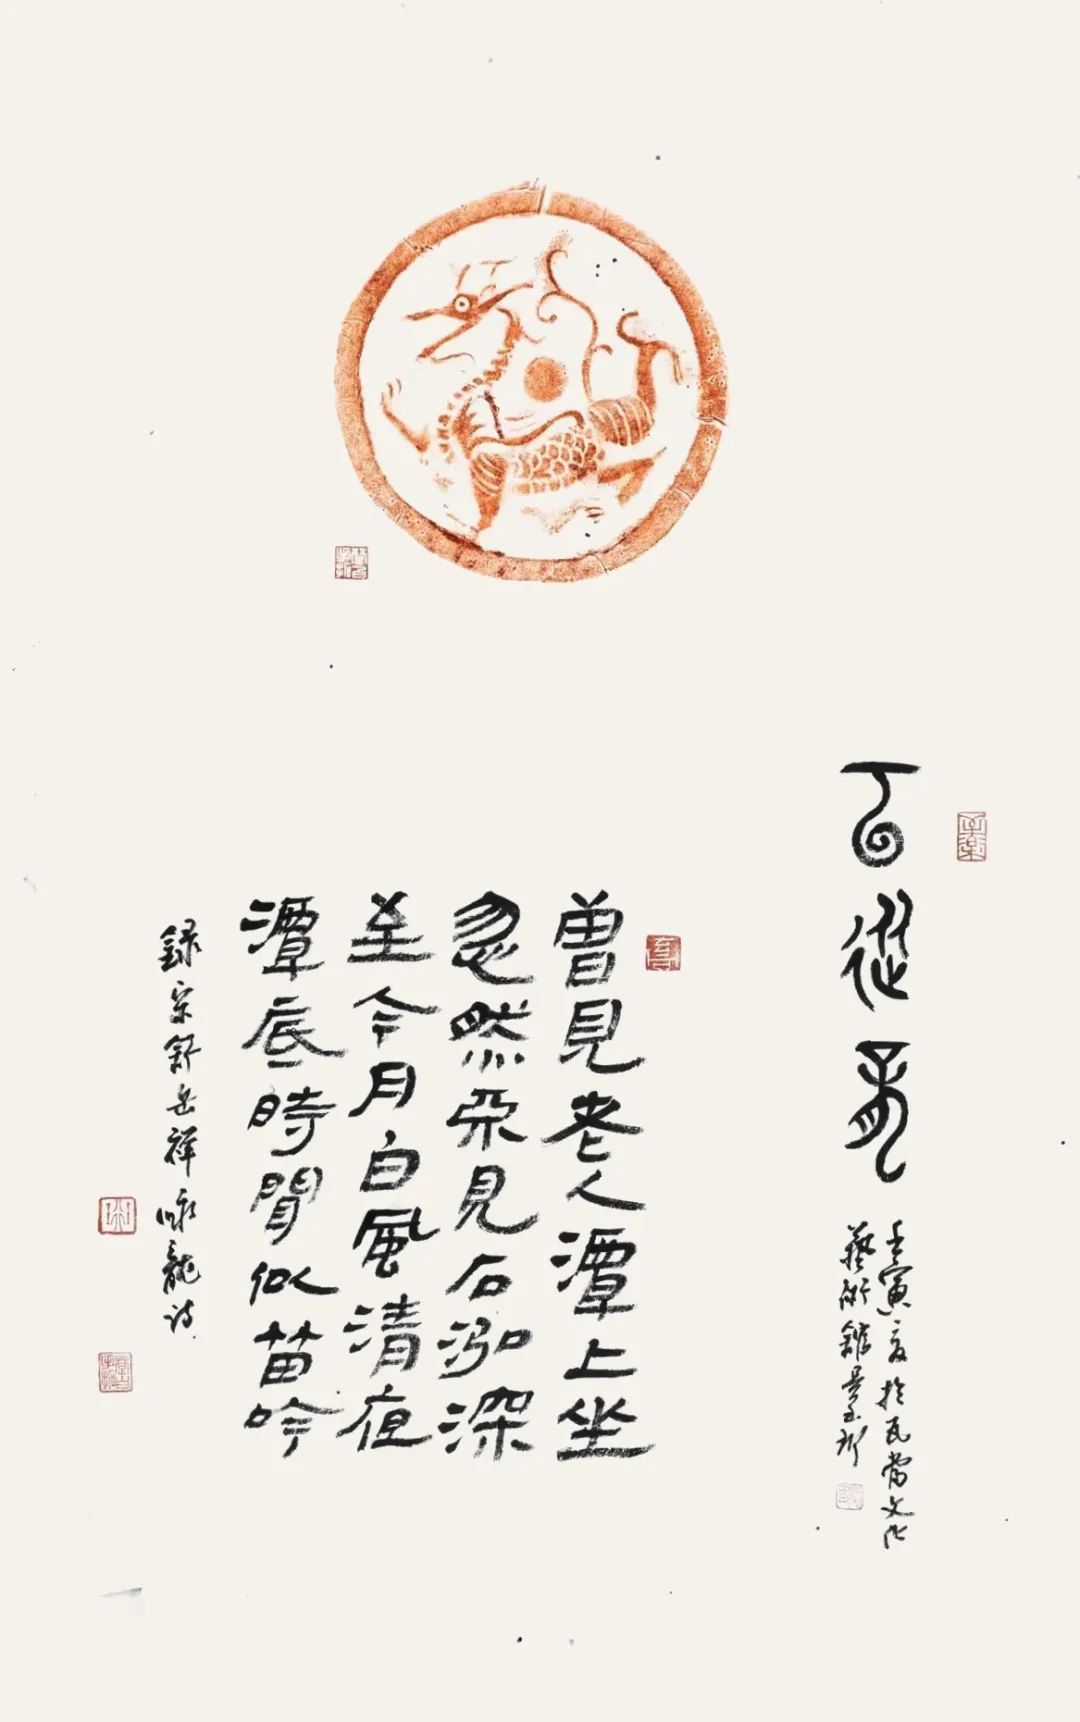 云從龍
壬寅夏於瓦當文化
藝術館景
曾見老人潭上坐
忽然不見石泓深
至今月白風清夜
潭底時聞似笛吟
錄宋舒岳祥咏龍詩